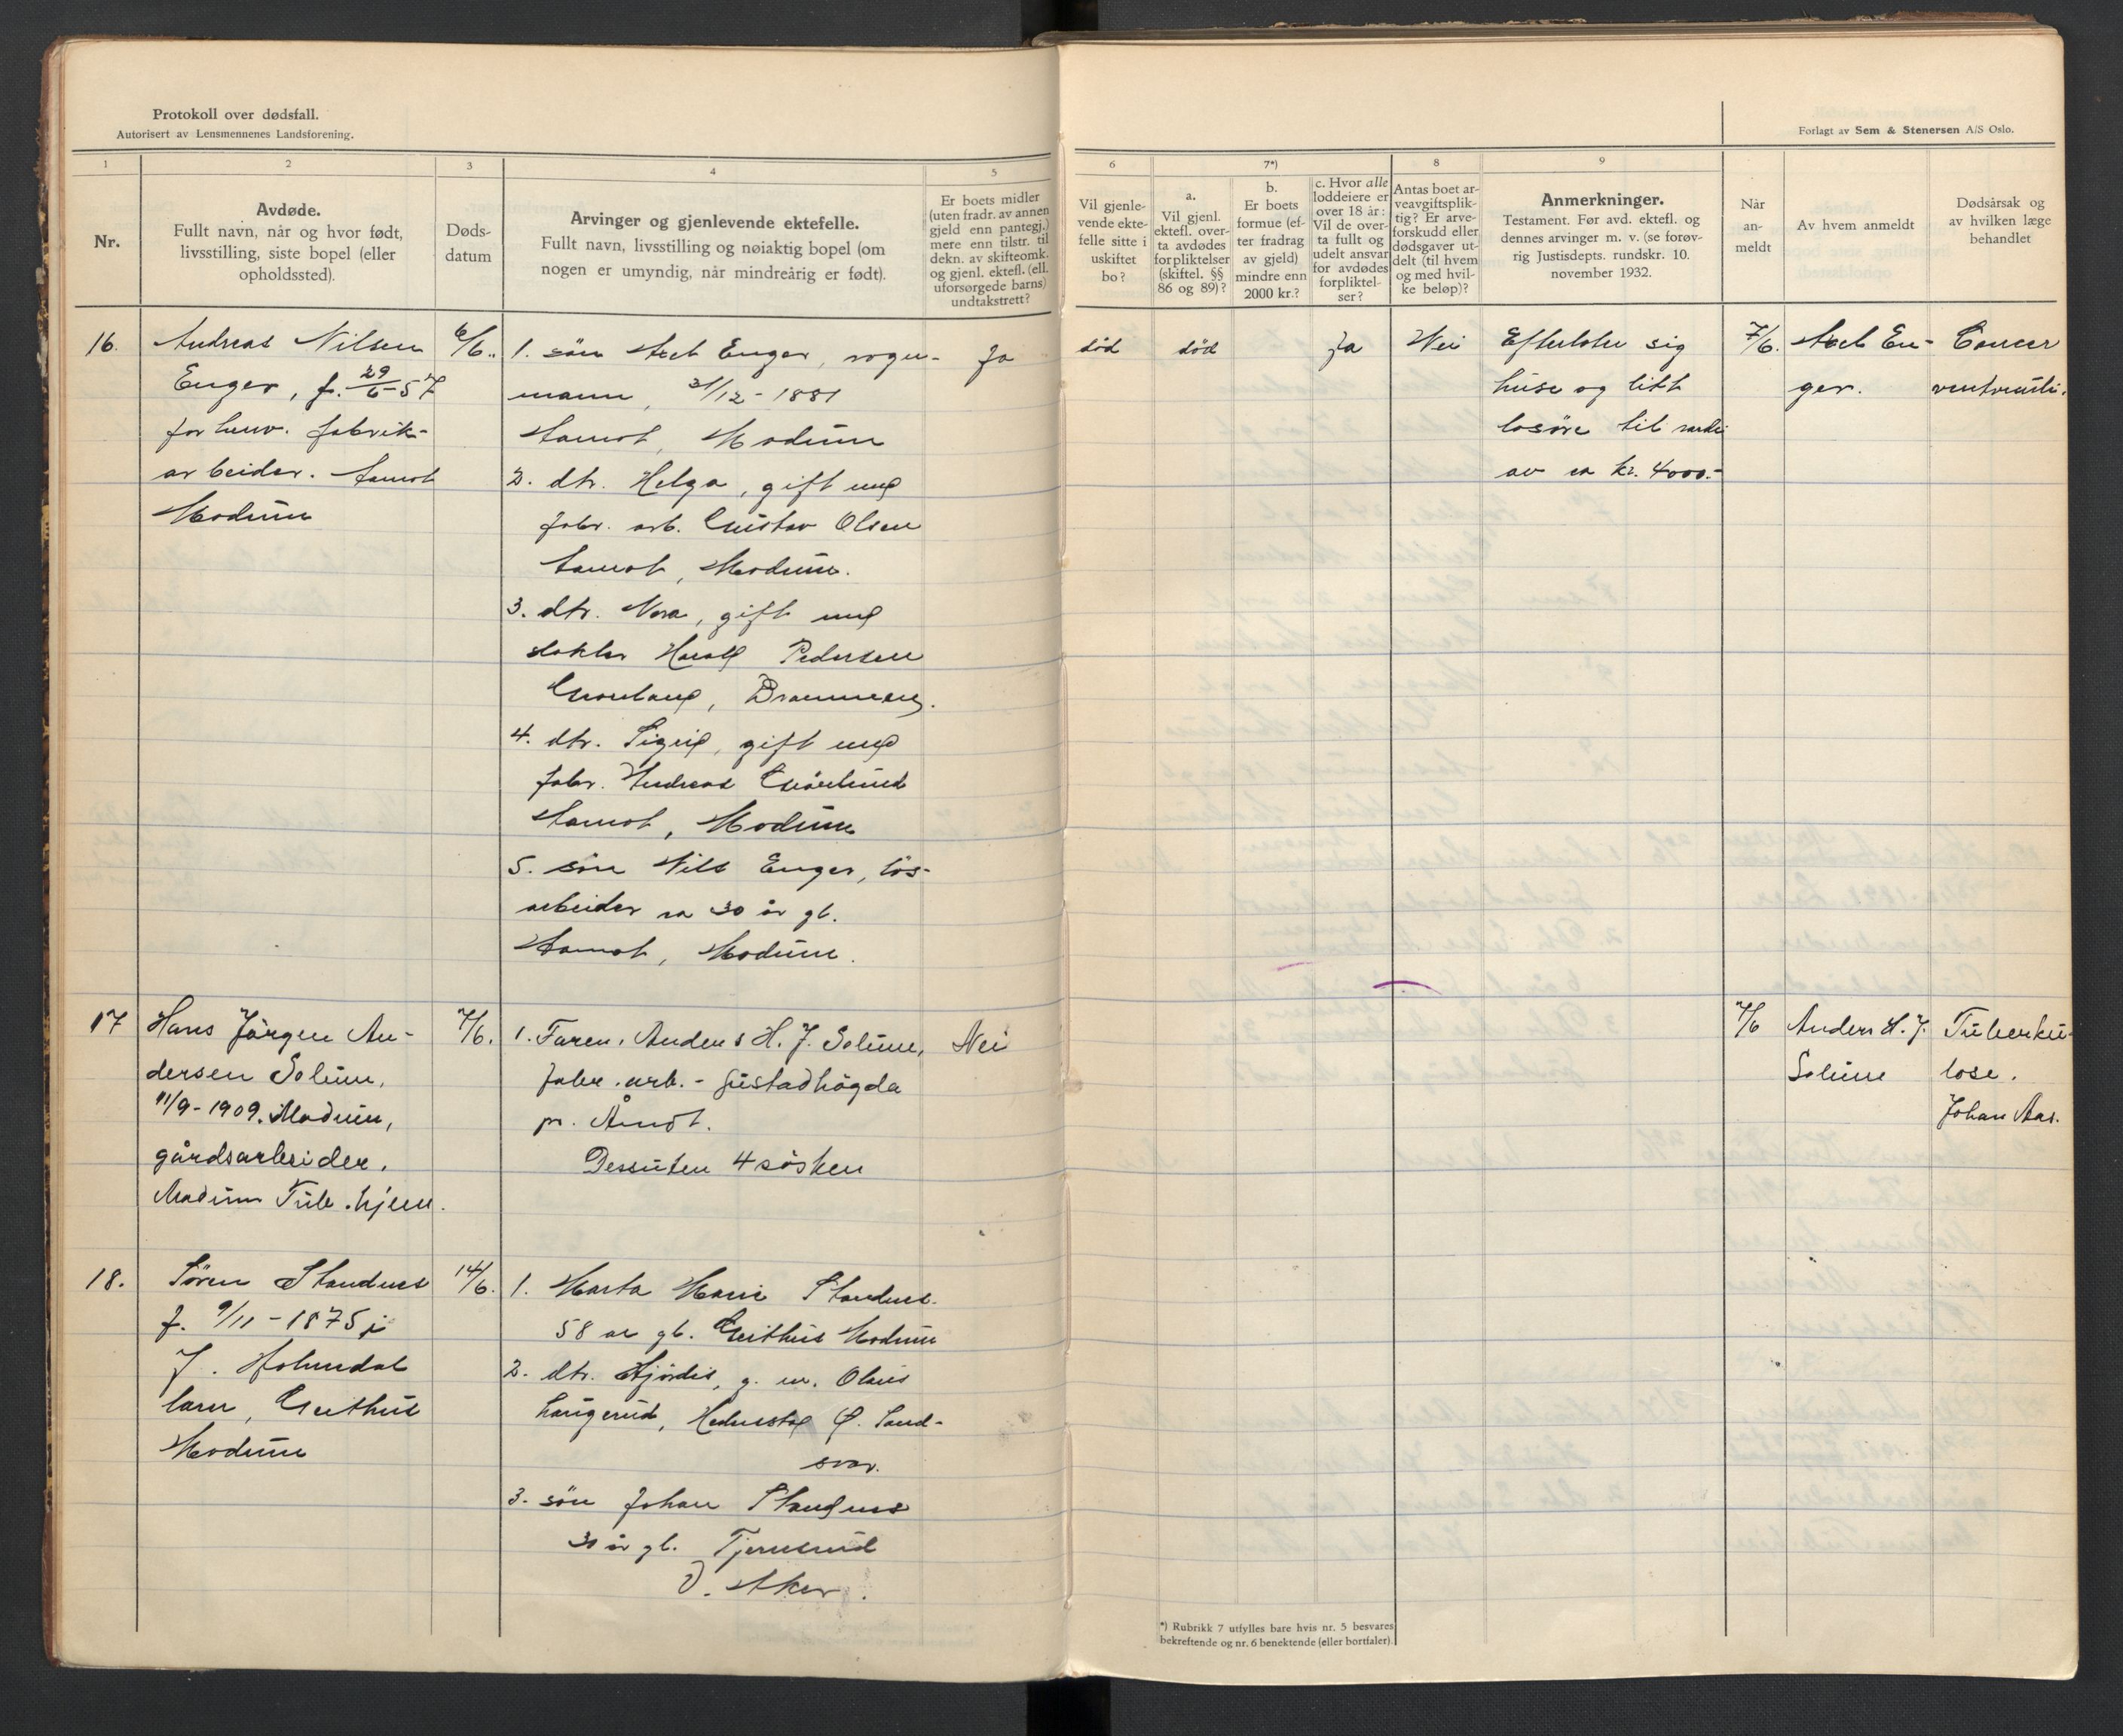 Protokoll over dødsfall.
Autorisert av Lensmennenes Landsforening.
Forlagt av Sem & Stenersen A/S Oslo.
1
2
3
4
5
6
7*)
8
9
Nr.
Avdøde.
Fullt navn, når og hvor født,
livsstilling, siste bopel (eller
opholdssted).
Døds-
datum
Arvinger og gjenlevende ektefelle.
Fullt navn, livsstilling og nøiaktig bopel (om
nogen er umyndig, når mindreårig er født).
Er boets midler
(uten fradr. av annen
gjeld enn pantegj.)
mere enn tilstr. til
dekn. av skifteomk.
og gjenl. ektefl. (ell.
uforsørgede barns)
undtakstrett?
Vil gjenle-
vende ekte-
felle sitte i
uskiftet
bo?
a.
Vil gjenl.
ektefl. over-
ta avdødes
forpliktelser
(skiftel. §§
86 og 89)?
b.
Er boets
formue (ef-
ter fradrag
av gjeld)
mindre enn
2000 kr.?
c. Hvor alle
loddeiere er
over 18 år:
Vil de over-
ta fullt og
udelt ansvar
for avdødes
forpliktel-
ser?
Antas boet ar-
veavgiftsplik-
tig? Er arve-
forskudd eller
dødsgaver ut-
delt (til hvem
og med hvil-
ke beløp)?
Anmerkninger.
Testament. Før avd. ektefl. og
dennes arvinger m. v. (se forøv-
rig Justisdepts. rundskr. 10.
november 1932.
Når
an-
meldt
Av hvem anmeldt
Dødsårsak og
av hvilken læge
behandlet
16.
Andreas Nilsen
Enger, f. 29/6-57
forhenv. fabrik-
arbeider. Aamot
Modum
6/6.
1. sön Axel Enger, vogn-
mann, 31/12-1881
Aamot, Modum
2. dtr. Helga, gift med
fabr. arb. Gustav Olsen
Aamot, Modum.
3. dtr. Nora, gift med
slakter Harald Pedersen
Grönland, Drammen.
4. dtr. Sigrid, gift med
fabr. Andreas
Aamot, Modum
5. sön Nils Enger, lös-
arbeider ca 30 år gl.
Aamot, Modum.
Ja
död
död
Ja
Nei
Efterlater sig
huse og litt
losöre til verdi
av ca kr. 4000.-
7/6.
Axel En-
ger.
Cancer
ventriculi.
17
Hans Jörgen An-
dersen Solum,
11/9-1909. Modum,
gårdsarbeider.
Modum Tub. hjem.
7/6.
1. Faren. Anders H. J. Solum,
fabr. arb. - Gustadhögda
pr. Åmot.
Dessuten 4 søsken
Nei
7/6
Anders H. J.
Solum
Tuberku-
lose.
Johan Aas.
18.
Sören Standnes
f. 9/11-1875 i
Geithus
Modum
14/6.
1. Marta Marie Standnes
58 år gl. Geithus Modum
2. dtr. Hjördis, g. m. Olaus
Langerud, Hedenstad Ø. Sand-
svær.
3. sön Johan Standnes
30 år gl. Tjernsrud
V. Aker.
*) Rubrikk 7 utfylles bare hvis nr. 5 besvares
bekreftende og nr. 6 benektende (eller bortfaler).